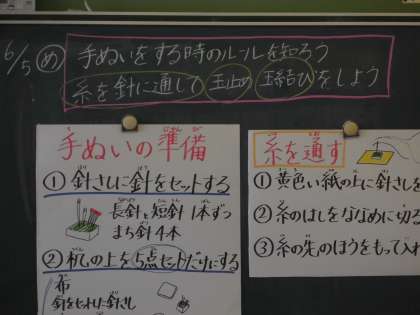 6/5 め 手ぬいをする時のルールを知ろう
糸を針に通して 玉止め 玉結びをしよう
手ぬいの準備
①針さしに針をセットする
長針と短針 1本ずつ
まち針4本
②机の上を5点セットだけにする
布
針をセットした針さし
糸を通す
①黄色い紙の上に針さしを
②糸のはしをななめに切る
③糸の先のほうをもって入れ